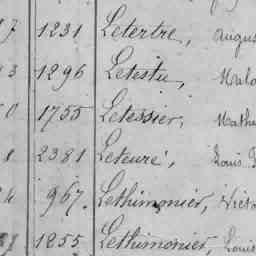 7 1231 Letertre, Augus
3 1296 Letestu,
0 1755 Letessier, Mathu
1 2381 Leteuré, Louis
967. Lethimonier, Victo
1255 Lethimonier, Louis